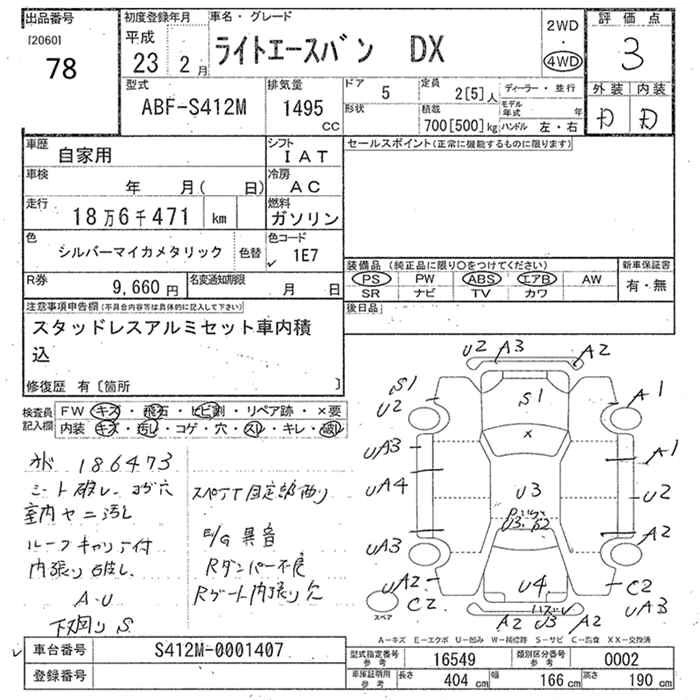 出品番号
[2060]
78
初度登録年月
平成
23 2月
車名・グレード
ライトエースバン DX
2WD
・
4WD
評価点
3
外装 内装
D D
型式
ABF-S412M
排気量
1495
CC
ドア
5
定員
2[5]人
ディーラー・並行
形状
積載
700[500]kg
モデル年式 年
ハンドル 左・右
車歴
自家用
シフト
IAT
車検
年 月( 日)
冷房
AC
走行
18万6千471 km
燃料
ガソリン
色
シルバーマイカメタリック
色替
色コード
1E7
R券
9,660円
名変通知期限
月 日
セールスポイント(正常に機能するものに限ります)
装備品(純正品に限り○をつけてください)
PS PW ABS エアB AW
SR ナビ TV カワ
新車保証書
有・無
後日品
注意事項申告欄(不具合内容等は具体的に記入して下さい)
スタッドレスアルミセット車内積
込
修復歴 有〔箇所 〕
検査員
記入欄
FW キズ・飛石・ヒビ割・リペア跡・×要
内装 キズ・汚レ・コゲ・穴・スレ・キレ・破レ
186473
シート破レ コゲ穴
室内ヤニ汚レ
ルーフキャリア付
内張り破レ
A・U
下廻りS
スペアT固定部曲り
E/G異音
Rダンパー不良
Rゲート内張り欠
U2 A3 A2
S1
U2
S1
A1
×
UA3
A1
UA4
U3
U2
U3・P2
UA3
A2
UA2
C2
U4
C2
UA3
スペア
A2 U3 A2
A-キズ E-エクボ U-凹み W-補修跡 S-サビ C-腐食 XX-交換済
車台番号
S412M-0001407
登録番号
型式指定番号
参考
16549
類別区分番号
参考
0002
車庫証明用
参考
長さ
404 cm
幅
166 cm
高さ
190 cm